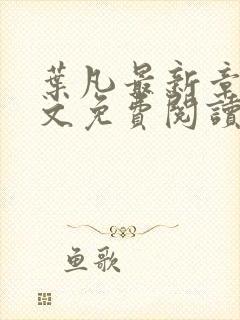 葉凡最新章
文免費閱讀
鱼歌